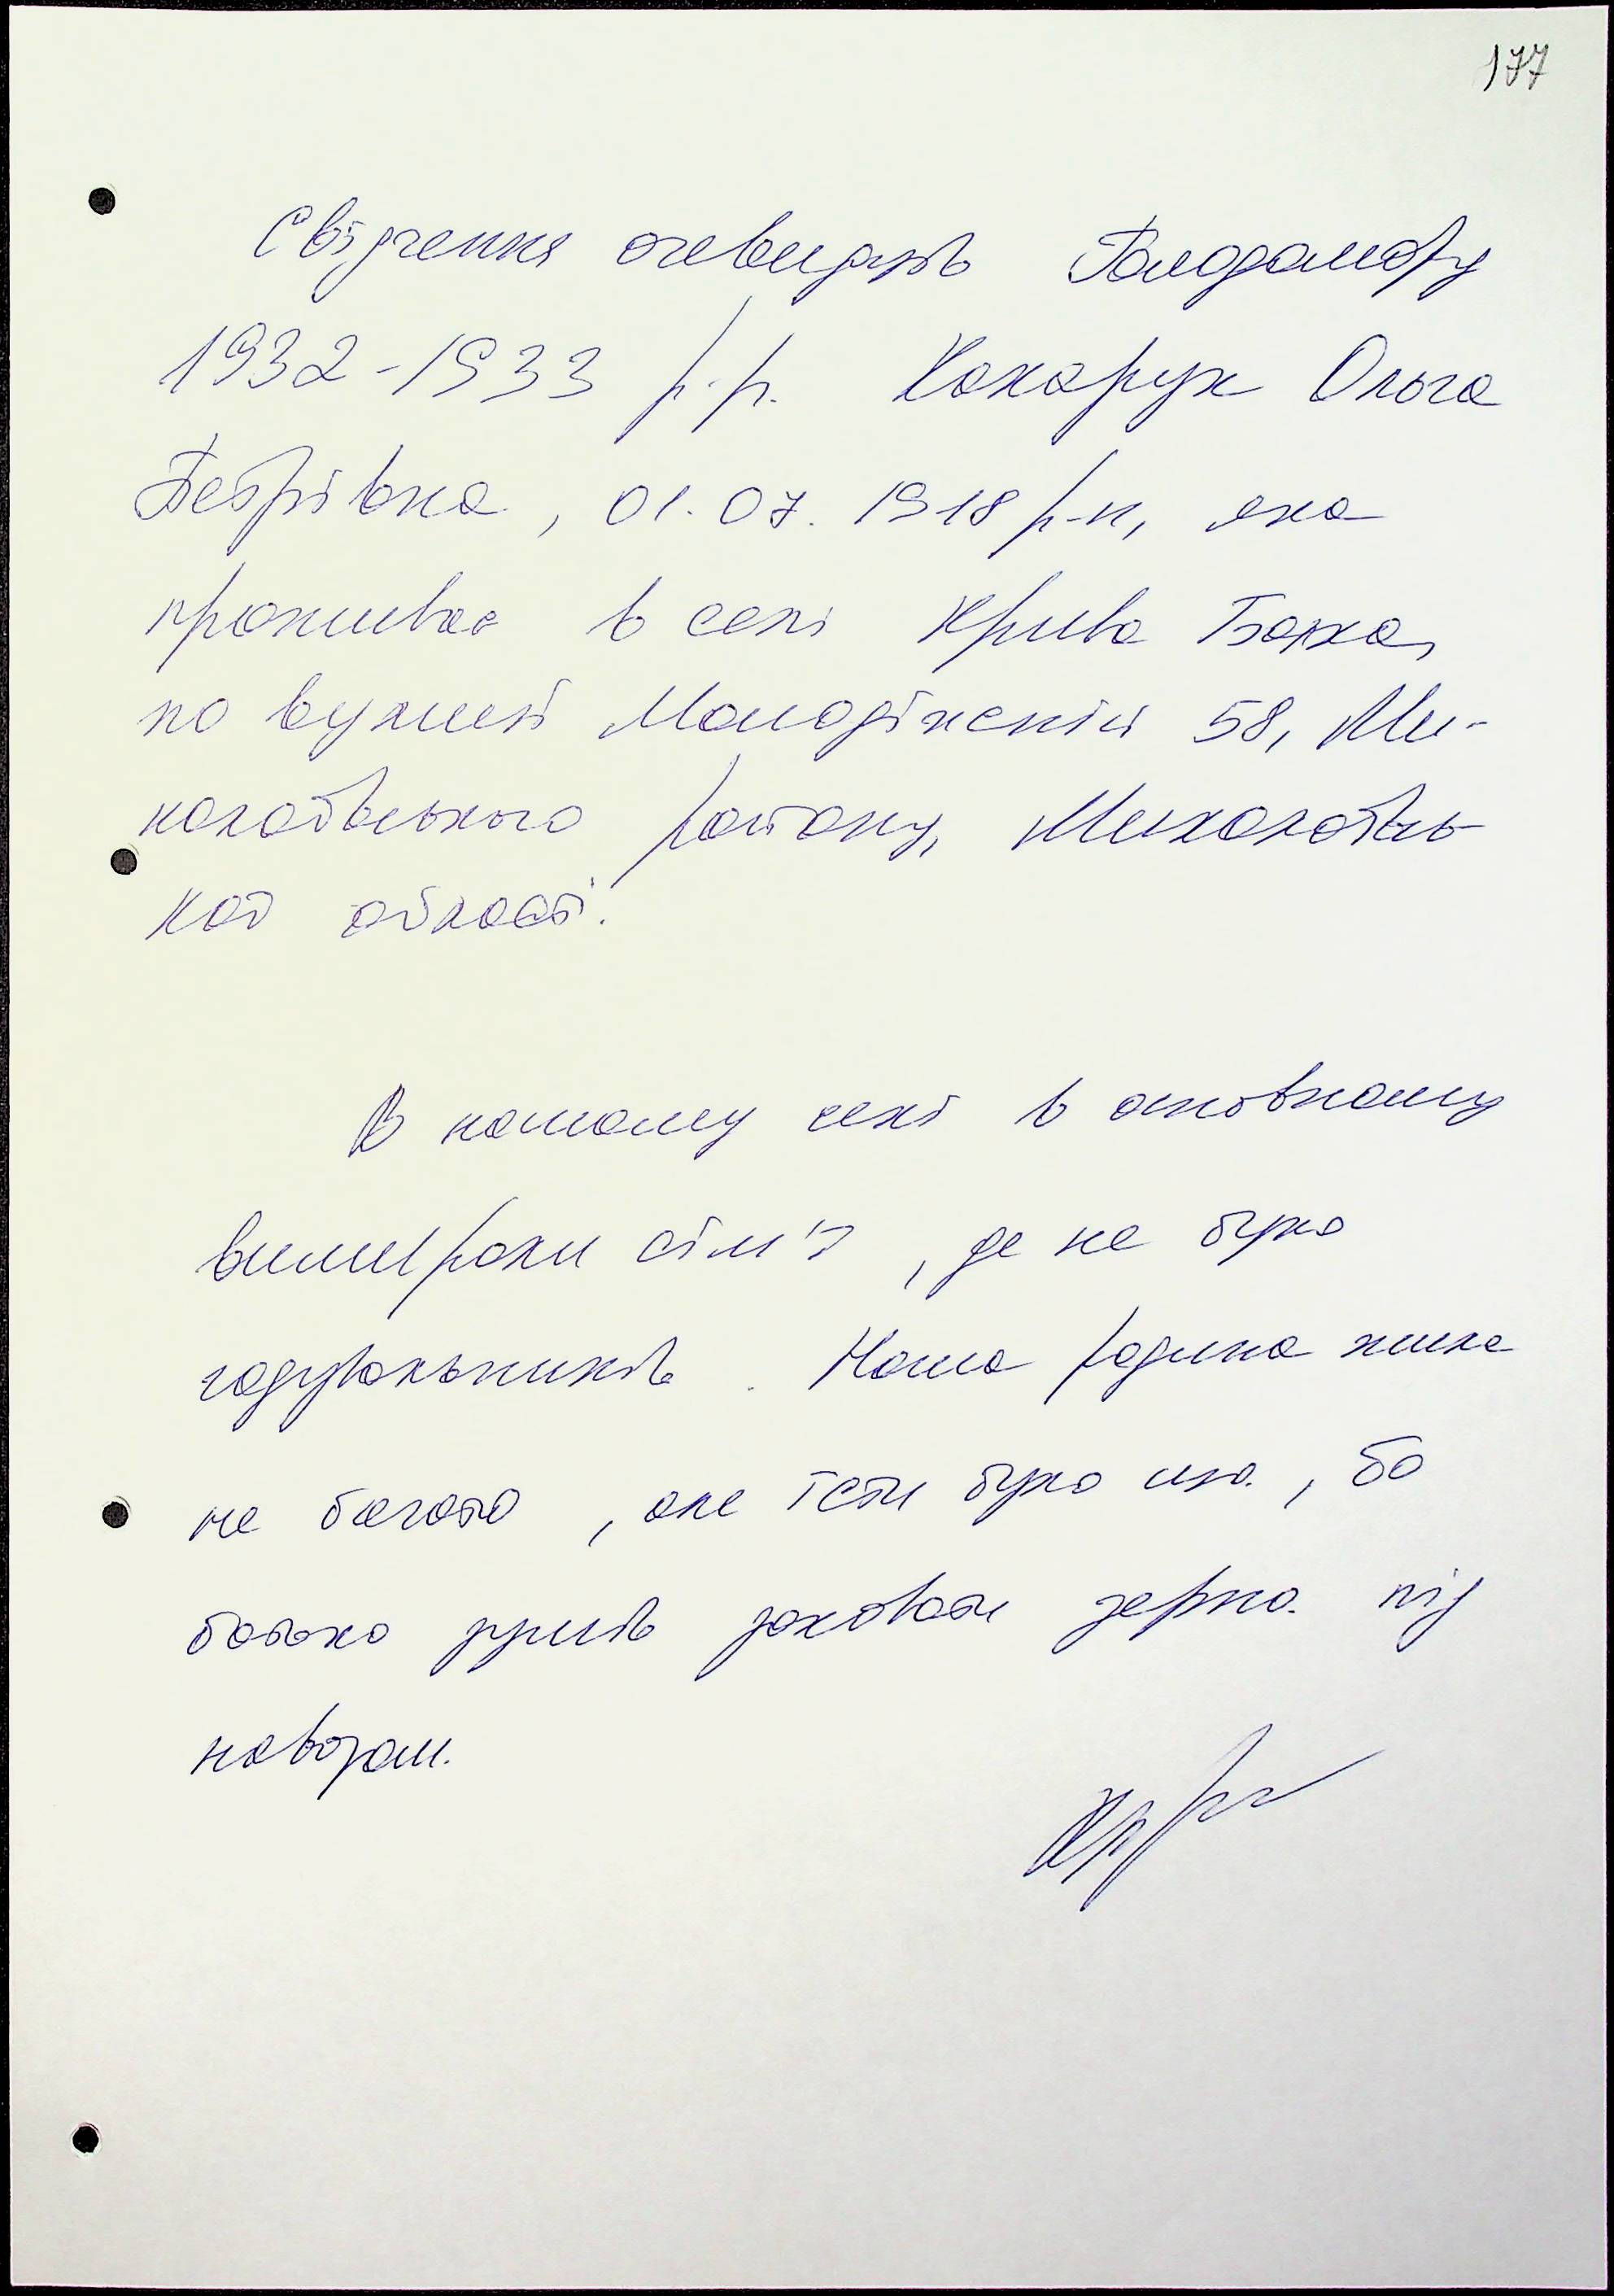 177
Свідчення очевидців Голодомору
1932-1933 р.р. Кокарук Ольга
Петрівна, 01.07.1918 р-н, яка
проживає в селі Крива Балка,
по вулиці Молодіжній 58, Ми-
колаївського району, Миколаївсь-
кої області.
В нашому селі в основному
вимирали сім'ї, де не було
годувальників. Наша родина жила
не багато, але їсти було що, бо
батько зумів заховати зерно під
навозом.